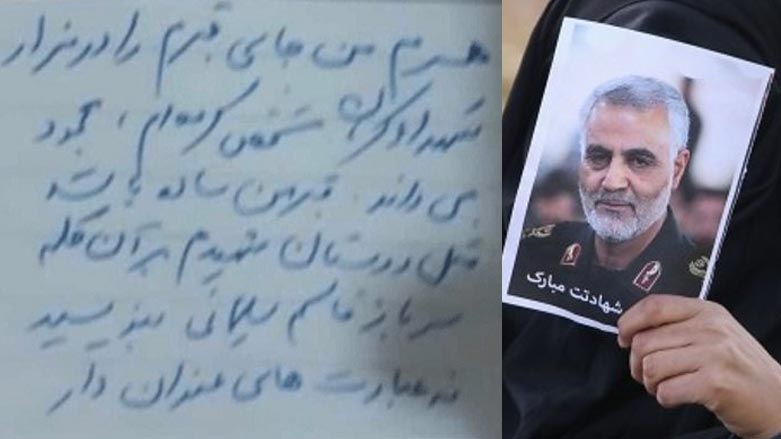 همسرم من جای قبرم را در مزار
شهدای کرمان مشخص کرده‌ام، محمود
می‌داند. قبر من ساده باشد
مثل دوستان شهیدم بر آن کلمه
سرباز قاسم سلیمانی بنویسید
نه عبارت‌های عنوان دار
شهادتت مبارک